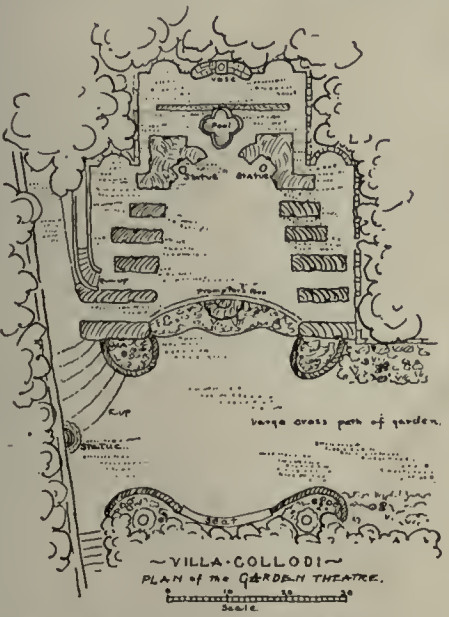 VASE
Pool
STATUE STATUE
R. up
Prompter's Box
R. up
Large cross path of garden.
STATUE
Seat
~VILLA·COLLODI~
PLAN of the GARDEN THEATRE.
0 10 20 30
Scale